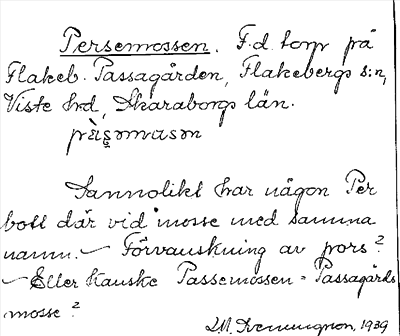 Persemossen. F.d. torp på
Flakeb. Passagården, Flakebergs s:n,
Viste hd, Skaraborgs län.
Sannolikt har någon Per
bott där vid mosse med samma
namn. – Förvanskning av pors?
– Eller kanske Passemossen = Passagårds
mosse?
1939